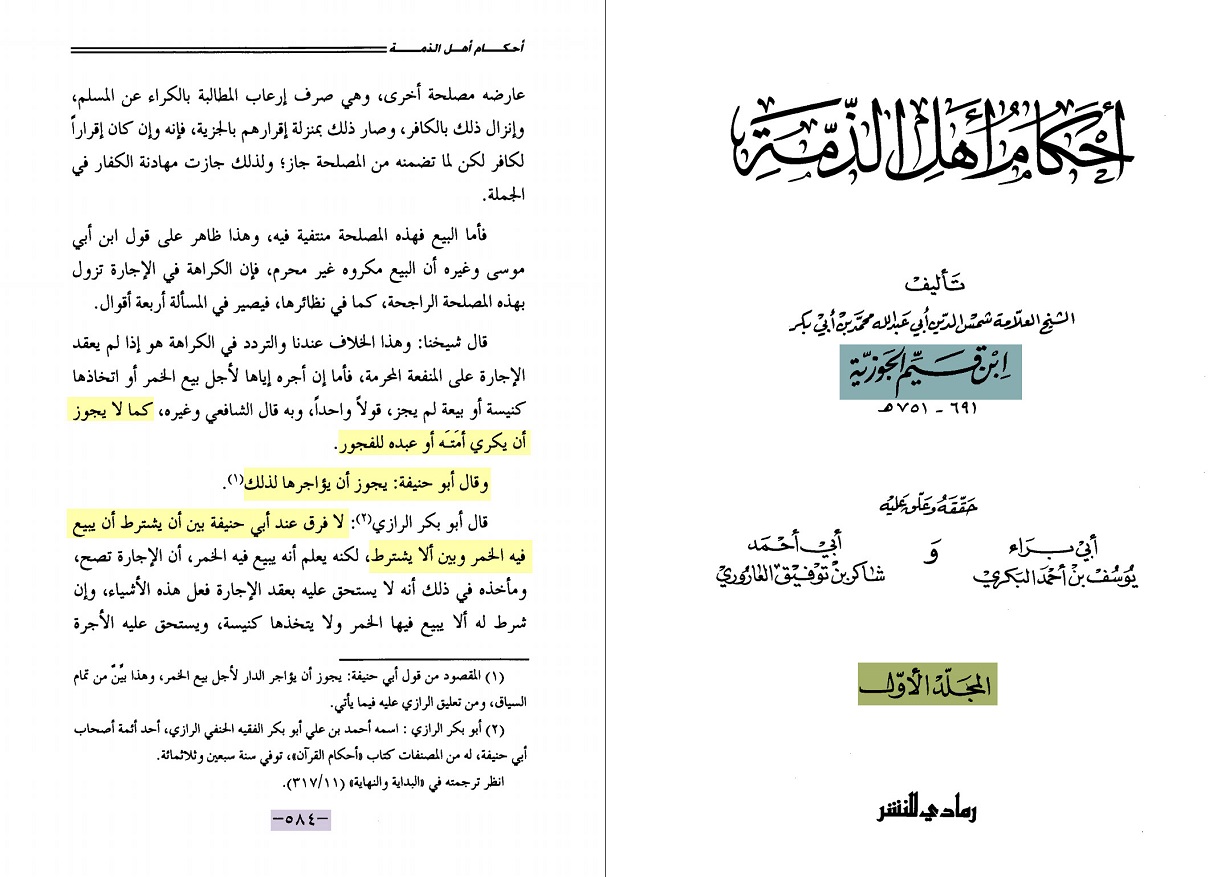 أحكـــام أهـل الذمـــة
عارضه مصلحة أخرى، وهي صرف إرعاب المطالبة بالكراء عن المسلم،
وإنزال ذلك بالكافر، وصار ذلك بمنزلة إقرارهم بالجزية، فإنه وإن كان إقراراً
لكافر لكن لما تضمنه من المصلحة جاز؛ ولذلك جازت مهادنة الكفار في
الجملة.
فأما البيع فهذه المصلحة منتفية فيه، وهذا ظاهر على قول ابن أبي
موسى وغيره أن البيع مكروه غير محرم، فإن الكراهة في الإجارة تزول
بهذه المصلحة الراجحة، كما في نظائرها، فيصير في المسألة أربعة أقوال.
قال شيخنا: وهذا الخلاف عندنا والتردد في الكراهة هو إذا لم يعقد
الإجارة على المنفعة المحرمة، فأما إن أجره إياها لأجل بيع الخمر أو اتخاذها
كنيسة أو بيعة لم يجز، قولاً واحداً، وبه قال الشافعي وغيره، كما لا يجوز
أن يكري أمَتَه أو عبده للفجور.
وقال أبو حنيفة: يجوز أن يؤاجرها لذلك(١).
قال أبو بكر الرازي(٢): لا فرق عند أبي حنيفة بين أن يشترط أن يبيع
فيه الخمر وبين ألا يشترط، لكنه يعلم أنه يبيع فيه الخمر، أن الإجارة تصح،
ومأخذه في ذلك أنه لا يستحق عليه بعقد الإجارة فعل هذه الأشياء، وإن
شرط له ألا يبيع فيها الخمر ولا يتخذها كنيسة، ويستحق عليه الأجرة
(١) المقصود من قول أبي حنيفة: يجوز أن يؤاجر الدار لأجل بيع الخمر، وهذا بيِّنٌ من تمام
السياق، ومن تعليق الرازي عليه فيما يأتي.
(٢) أبو بكر الرازي : اسمه أحمد بن علي أبو بكر الفقيه الحنفي الرازي، أحد أئمة أصحاب
أبي حنيفة، له من المصنفات كتاب «أحكام القرآن»، توفي سنة سبعين وثلاثمائة.
انظر ترجمته في «البداية والنهاية» (٣١٧/١١).
–٥٨٤–
أحكام أهل الذمة
تأليف
الشيخ العلامة شمس الدين أبي عبد الله محمد بن أبي بكر
ابن قيم الجوزية
٦٩١ - ٧٥١ هـ
حققه وعلق عليه
أبي براء
يوسف بن أحمد البكري
و
أبي أحمد
شاكر بن توفيق العاروري
المجلد الأول
رمادي للنشر